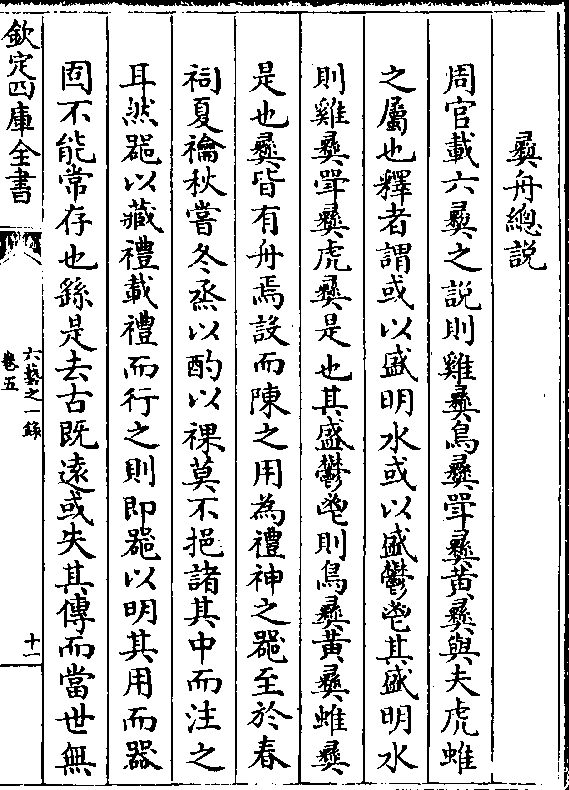 彞舟總説
周官載六彞之説則雞彞鳥彞斝彞黄彞與夫虎蜼
之屬也釋者謂或以盛明水或以盛鬱鬯其盛明水
則雞彞斝彞虎彞是也其盛鬱鬯則鳥彞黄彞蜼彞
是也彞皆有舟焉設而陳之用為禮神之器至於春
祠夏禴秋嘗冬烝以酌以祼莫不挹諸其中而注之
耳然器以藏禮載禮而行之則即器以明其用而器
固不能常存也繇是去古既遠或失其傳而當世無
欽定四庫全書
六藝之一錄
卷五
十一